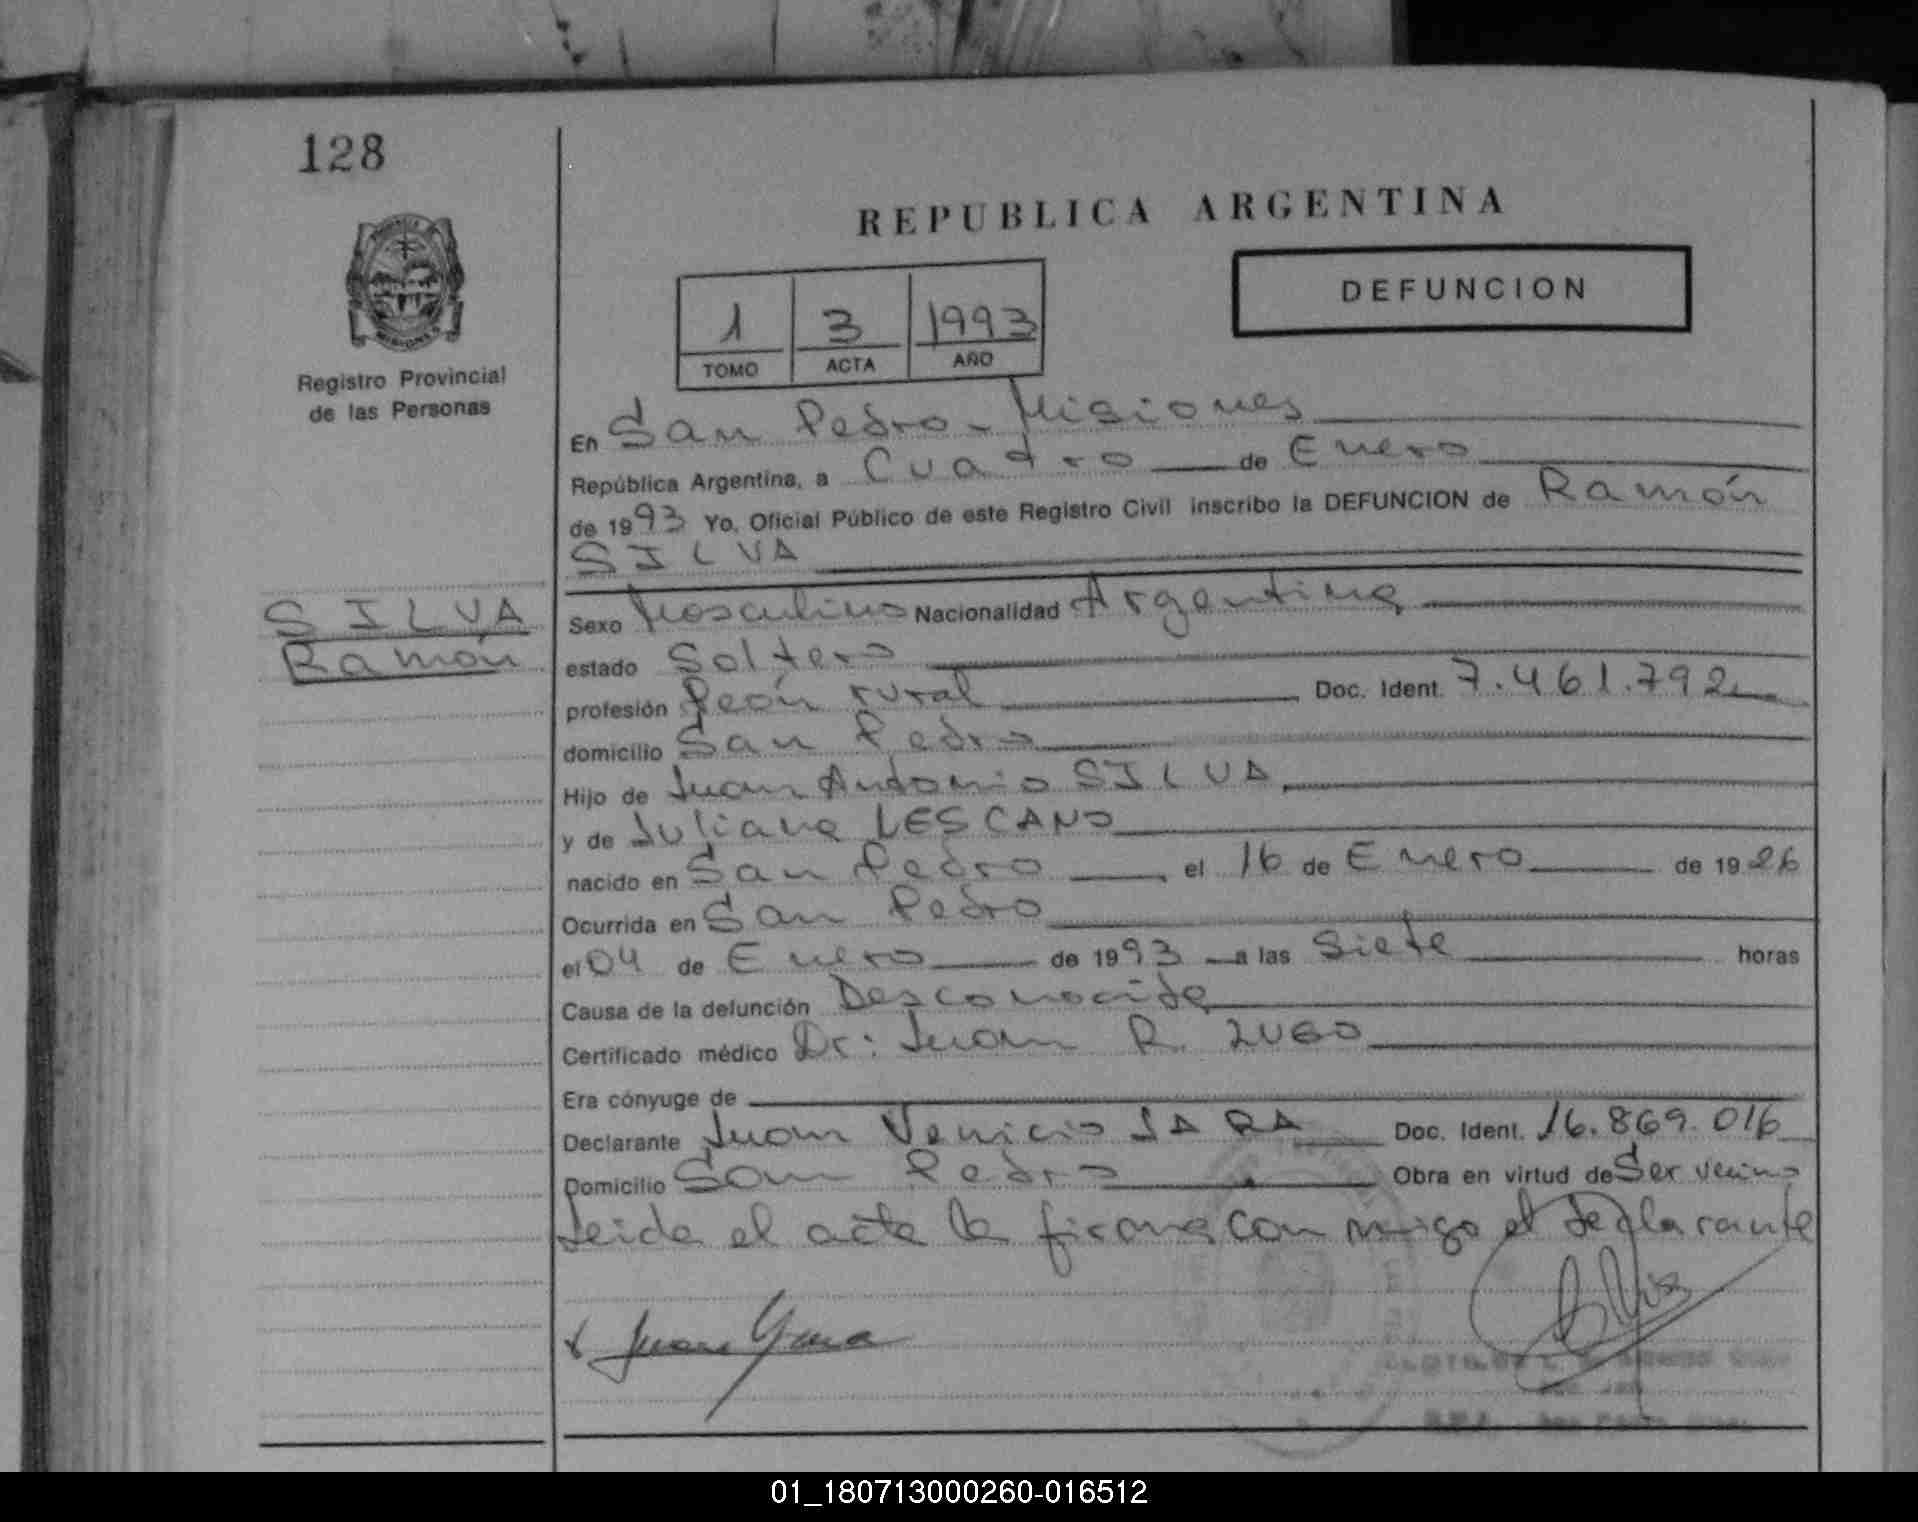 128
REPUBLICA ARGENTINA
DEFUNCION
1 3 1993
TOMO ACTA AÑO
Registro Provincial
de las Personas
En San Pedro - Misiones
República Argentina, a Cuatro de Enero
de 1993 Yo, Oficial Público de este Registro Civil inscribo la DEFUNCION de Ramón
SILVA
SILVA
Ramón
Sexo Masculino Nacionalidad Argentina
estado Soltero
profesión Peón rural Doc. Ident. 7.461.792
domicilio San Pedro
Hijo de Juan Antonio SILVA
y de Juliana LESCANO
nacido en San Pedro, el 16 de Enero de 1926
Ocurrida en San Pedro
el 04 de Enero de 1993 a las Siete horas
Causa de la defunción Desconocida
Certificado médico Dr: Juan R. LUGO
Era cónyuge de
Declarante Juan Venicio JARA Doc. Ident. 16.869.016
Domicilio San Pedro Obra en virtud de Ser vecino
Leida el acta la firma con migo el declarante
Juan
01_180713000260-016512